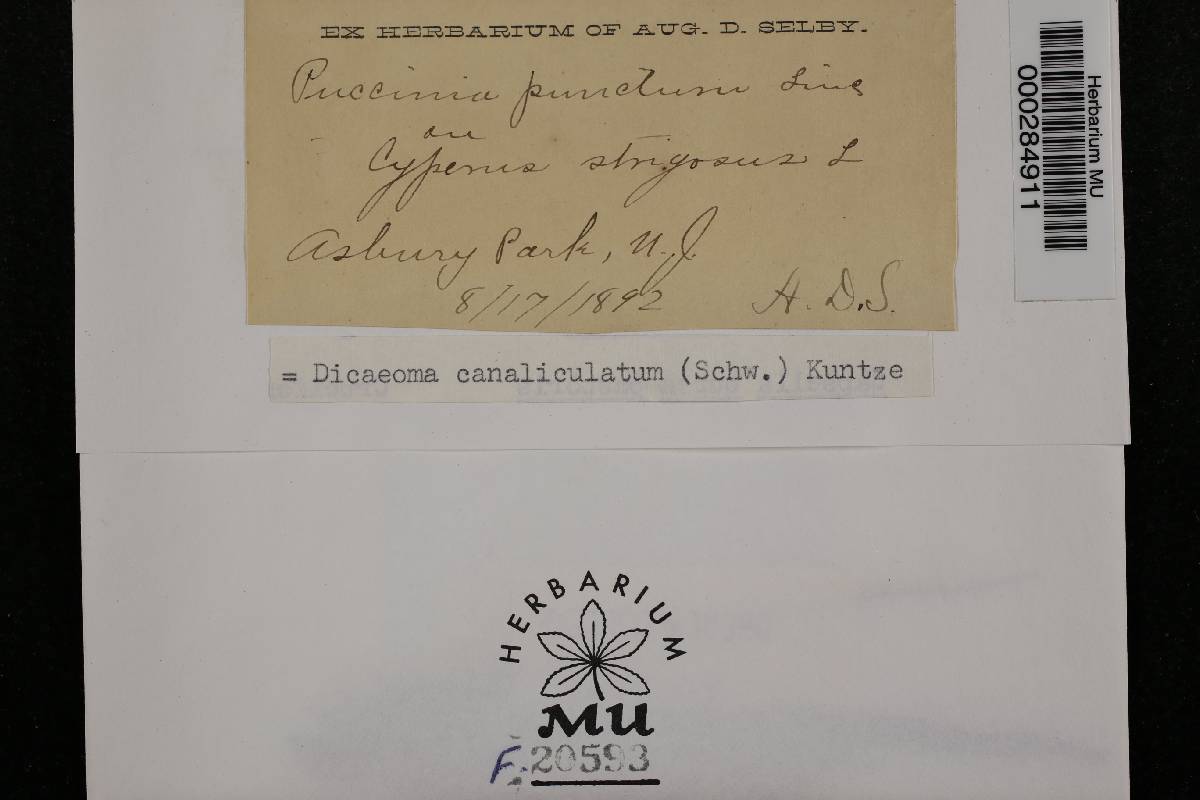 EX HERBARIUM OF AUG. D. SELBY.
Puccinia punctum Link
on
Cyperus strigosus L
Asbury Park, N.J.
8/17/1892 A. D. S.
= Dicaeoma canaliculatum (Schw.) Kuntze
Herbarium MU
000284911
HERBARIUM
MU
F. 20593